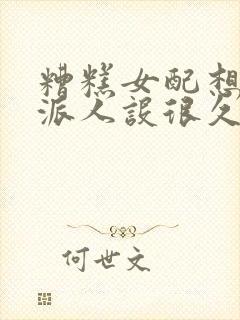 糟糕女配想
派人设很久
何世文